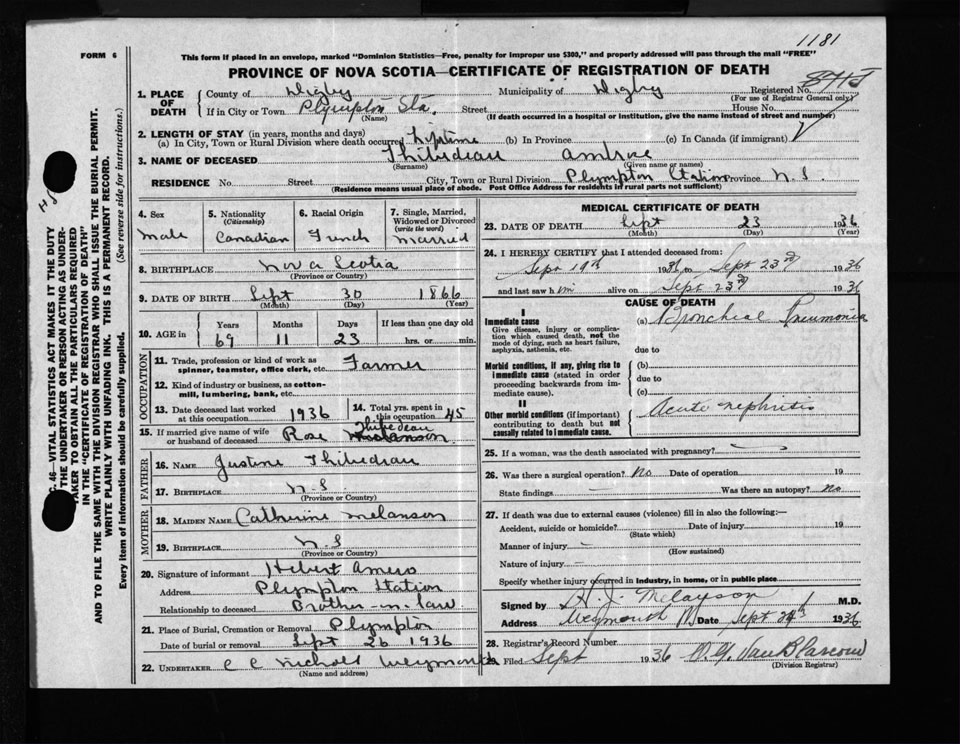 1181
FORM 6
This form if placed in an envelope, marked "Dominion Statistics—Free, penalty for improper use $300," and properly addressed will pass through the mail "FREE"
PROVINCE OF NOVA SCOTIA—CERTIFICATE OF REGISTRATION OF DEATH
1. PLACE OF DEATH
County of Digby Municipality of Digby Registered No.
(For use of Registrar General only)
If in City or Town Plympton Sta. Street House No.
(Name) (If death occurred in a hospital or institution, give the name instead of street and number)
2. LENGTH OF STAY (in years, months and days)
(a) In City, Town or Rural Division where death occurred Lifetime (b) In Province (c) In Canada (if immigrant)
3. NAME OF DECEASED Thibideau Ambrose
(Surname) (Given name or names)
RESIDENCE No. Street City, Town or Rural Division Plympton Station Province N.S.
(Residence means usual place of abode. Post Office Address for residents in rural parts not sufficient)
4. Sex
Male
5. Nationality
(Citizenship)
Canadian
6. Racial Origin
French
7. Single, Married, Widowed or Divorced
(write the word)
Married
8. BIRTHPLACE Nova Scotia
(Province or Country)
9. DATE OF BIRTH Sept 30 1866
(Month) (Day) (Year)
10. AGE in Years Months Days If less than one day old
69 11 23 hrs. or min.
OCCUPATION
11. Trade, profession or kind of work as spinner, teamster, office clerk, etc. Farmer
12. Kind of industry or business, as cotton-mill, lumbering, bank, etc.
13. Date deceased last worked at this occupation 1936
14. Total yrs. spent in this occupation 45
15. If married give name of wife or husband of deceased Rose Thibideau
FATHER
16. NAME Justine Thibideau
17. BIRTHPLACE N.S
(Province or Country)
MOTHER
18. MAIDEN NAME Catherine Melanson
19. BIRTHPLACE N.S
(Province or Country)
20. Signature of informant Hebert Amero
Address Plympton Station
Relationship to deceased Brother-in-law
21. Place of Burial, Cremation or Removal Plympton
Date of burial or removal Sept 26 1936
22. UNDERTAKER C C Nichols Weymouth
(Name and address)
MEDICAL CERTIFICATE OF DEATH
23. DATE OF DEATH Sept 23 1936
(Month) (Day) (Year)
24. I HEREBY CERTIFY that I attended deceased from:
Sept 19th 1936 to Sept 23rd 1936
and last saw him alive on Sept 23rd 1936
CAUSE OF DEATH
I
Immediate cause
Give disease, injury or complication which caused death, not the mode of dying, such as heart failure, asphyxia, asthenia, etc.
(a) Broncheal Pneumonia
due to
Morbid conditions, if any, giving rise to immediate cause (stated in order proceeding backwards from immediate cause).
(b)
due to
(c)
II
Other morbid conditions (if important) contributing to death but not causally related to immediate cause.
Acute nephritis
25. If a woman, was the death associated with pregnancy?
26. Was there a surgical operation? No Date of operation 19
State findings — Was there an autopsy? No
27. If death was due to external causes (violence) fill in also the following:—
Accident, suicide or homicide? Date of injury 19
(State which)
Manner of injury —
(How sustained)
Nature of injury —
Specify whether injury occurred in industry, in home, or in public place
Signed by H. J. Melanson M.D.
Address Weymouth N Date Sept 24th 1936
28. Registrar's Record Number
29. Filed Sept 1936
(Division Registrar)
46—VITAL STATISTICS ACT MAKES IT THE DUTY
THE UNDERTAKER OR PERSON ACTING AS UNDERTAKER TO OBTAIN ALL THE PARTICULARS REQUIRED
IN THE "CERTIFICATE OF REGISTRATION OF DEATH"
AND TO FILE THE SAME WITH THE DIVISION REGISTRAR WHO SHALL ISSUE THE BURIAL PERMIT.
WRITE PLAINLY WITH UNFADING INK. THIS IS A PERMANENT RECORD.
Every item of information should be carefully supplied. (See reverse side for instructions.)